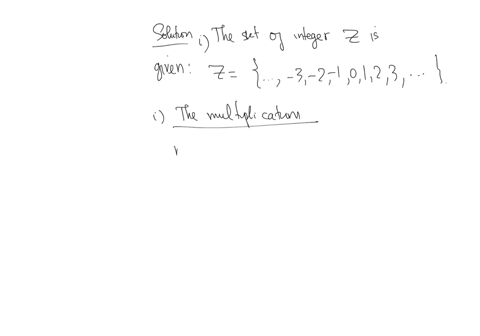 Solution i) The set of integer Z is
given: Z = {..., -3, -2, -1, 0, 1, 2, 3, ... }
i) The multiplications